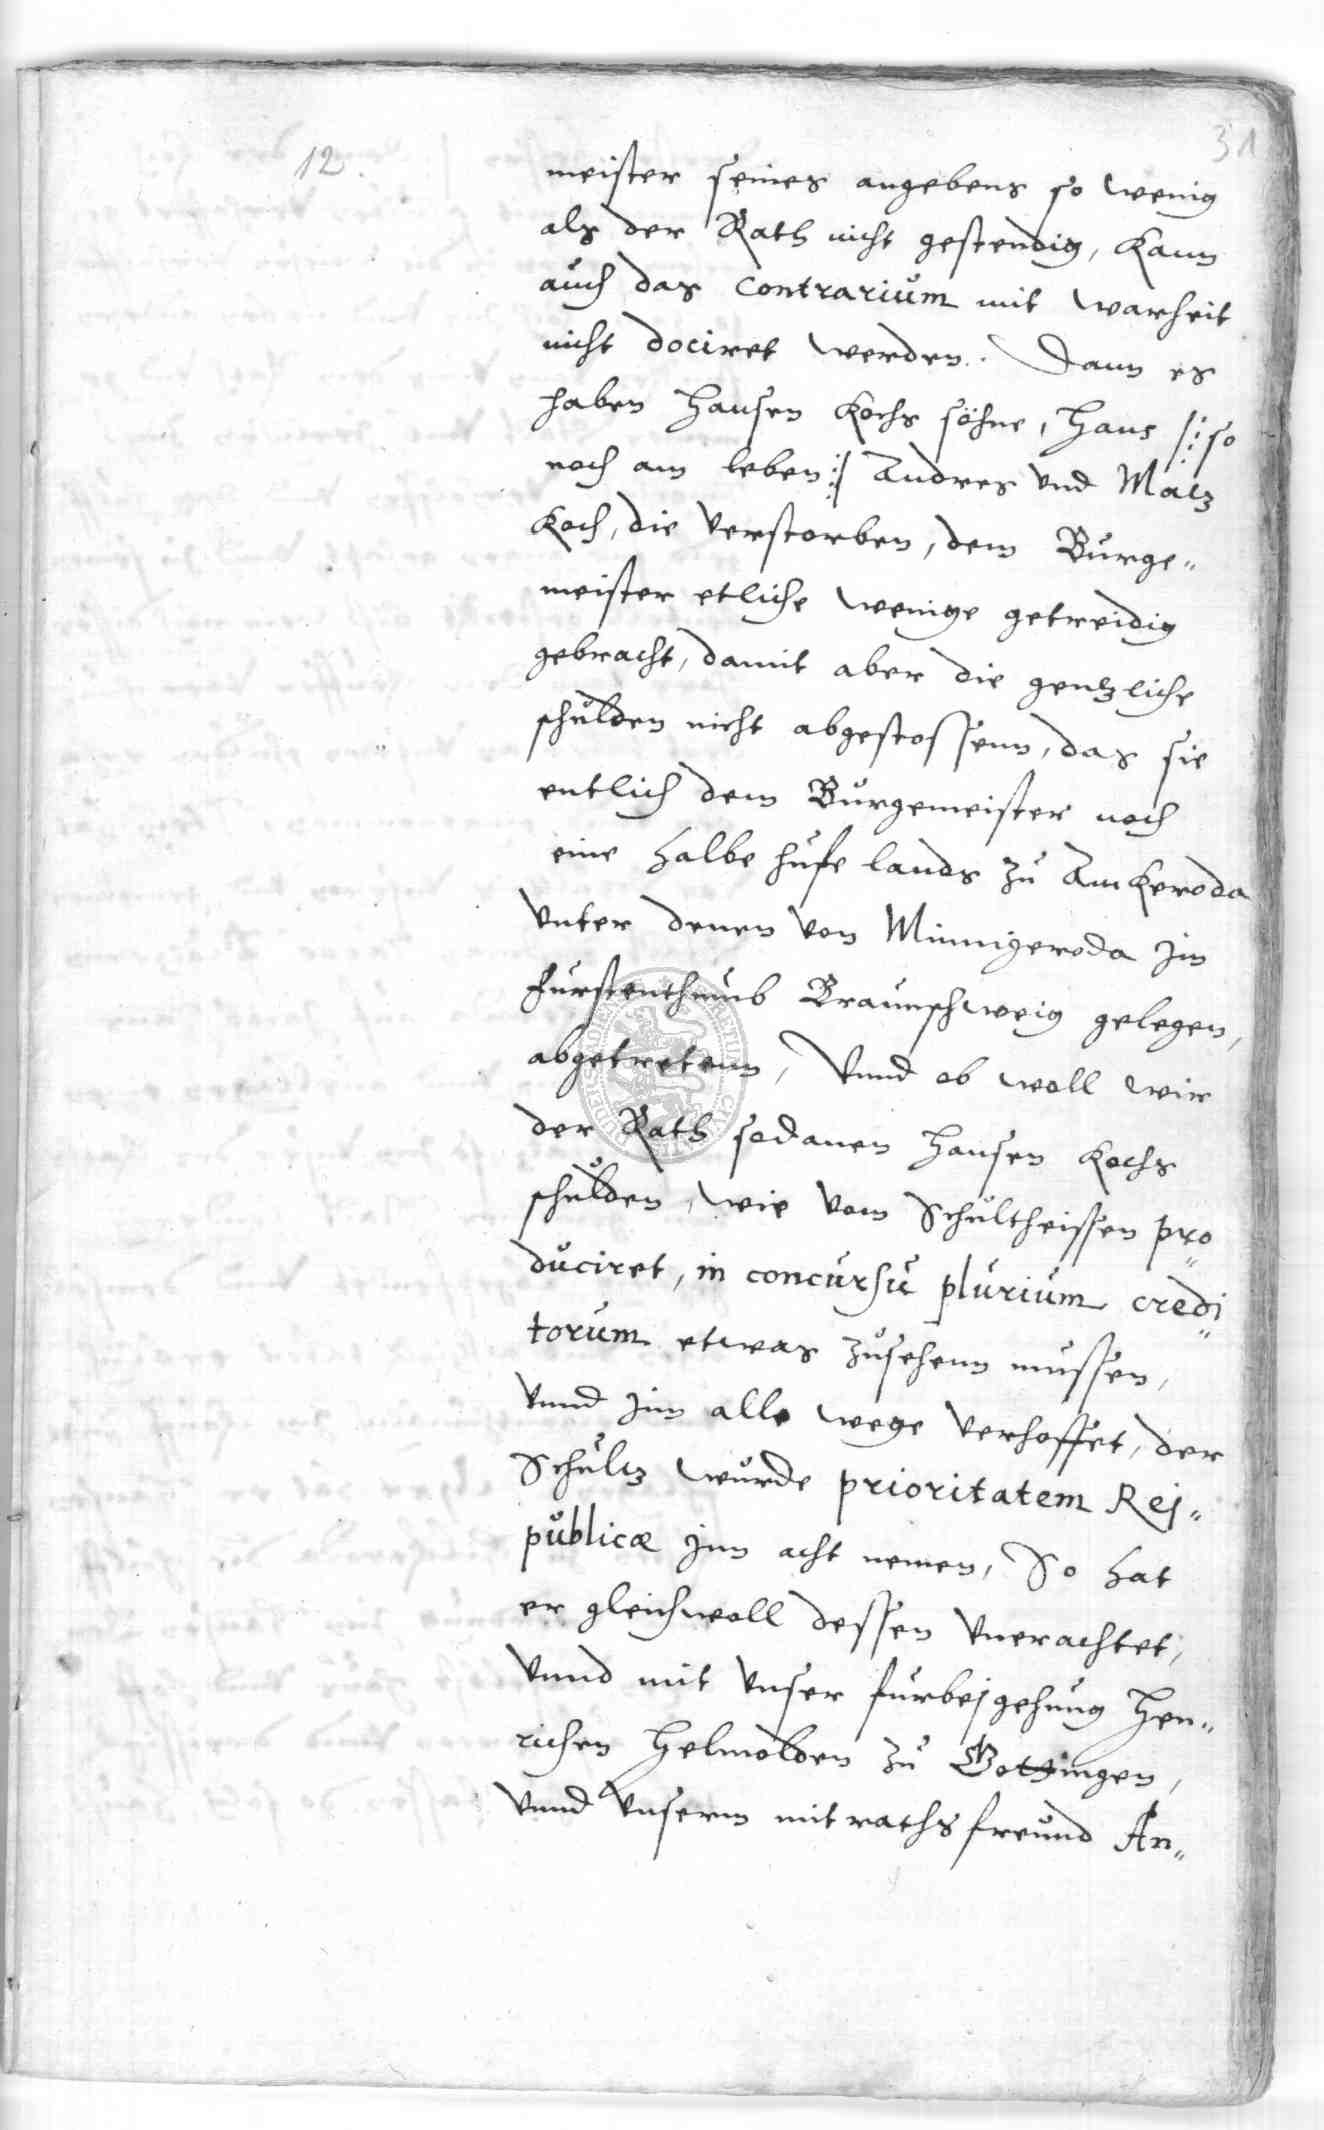 12.
31
meister seines angebens so wenig
als der Rath nicht gestendig, Kann
auch das Contrarium mit warheit
nicht dociret werden. Dann es
haben Hansen Kochs söhne, Hans /: so
noch am leben :/ Andres vnd Matz
Koch, die verstorben, dem Bürge„
meister etliche wenige getreidig
gebracht, damit aber die gentzliche
schulden nicht abgestossenn, das sie
entlich dem Bürgemeister noch
eine halbe hufe lands zu Amkeroda
vnter denen von Minnigeroda Jm
fürstenthumb Braunschweig gelegen,
abgetretenn, Vnnd ob woll wir
der Rath sodanen Hansen Kochs
schulden, wie vom Schultheissen pro„
duciret, in concursu plurium credi„
torum etwas zusehenn mussen,
vnnd Jnn alle wege verhoffet, der
Schultz würde prioritatem Rej„
publicæ Jnn acht nemen, So hat
er gleichwoll dessen vnerachtet,
vnnd mit vnser furbejgehung Hen„
richen Helmolden zu Gottingen,
vnnd vnserm mitrathsfreund An„